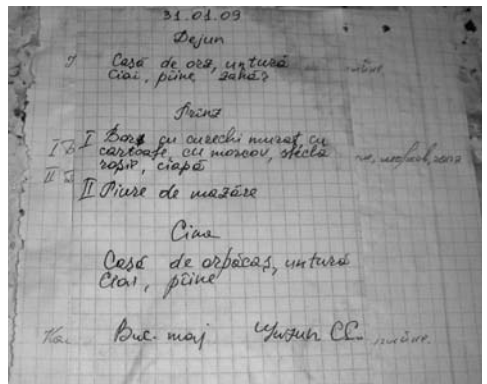 31.01.09
Dejun
Casă de orz, untură
Ciai, pîine zahăr
Prînz
I Borș cu curechi murat, cu
cartoafe, cu morcov, sfecla
roșie, ciapă
II Piure de mazăre
Cina
Casă de arpăcaș, untură
Ciai, pîine
Buc. maj